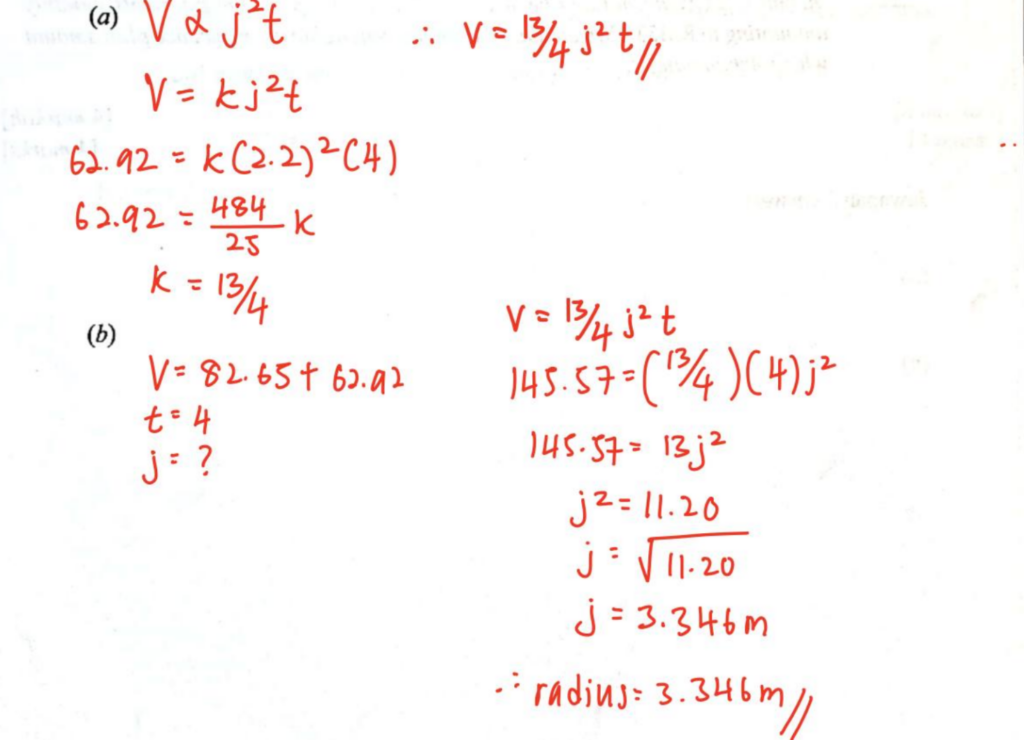 (a) V ∝ j²t
∴ V = 13/4 j² t //
V = kj²t
62.92 = k(2.2)²(4)
62.92 = 484/25 k
k = 13/4
(b)
V = 82.65 + 62.92
t = 4
j = ?
V = 13/4 j² t
145.57 = (13/4)(4)j²
145.57 = 13j²
j² = 11.20
j = √11.20
j = 3.346m
∴ radius = 3.346m //